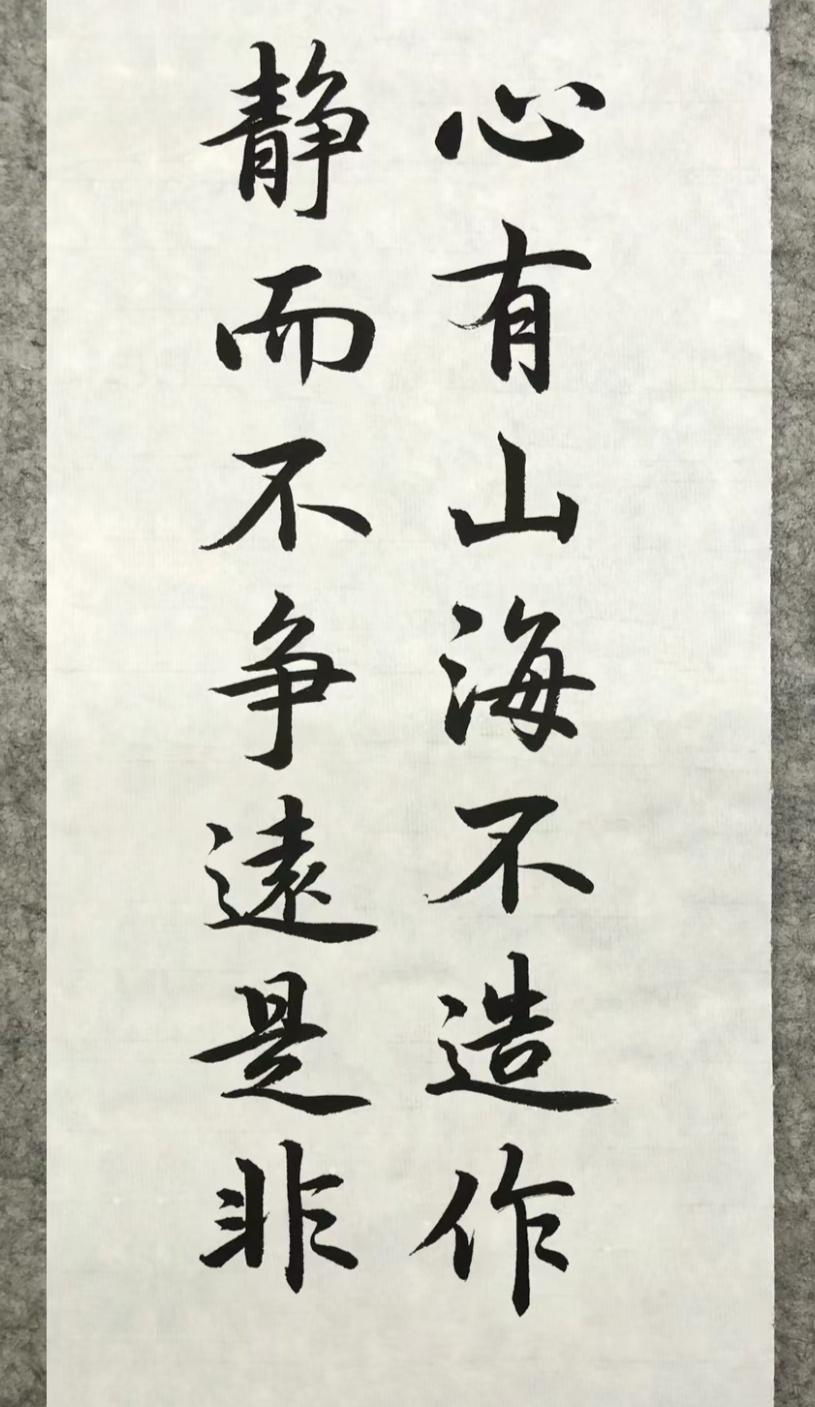 心有山海不造作
静而不争遠是非